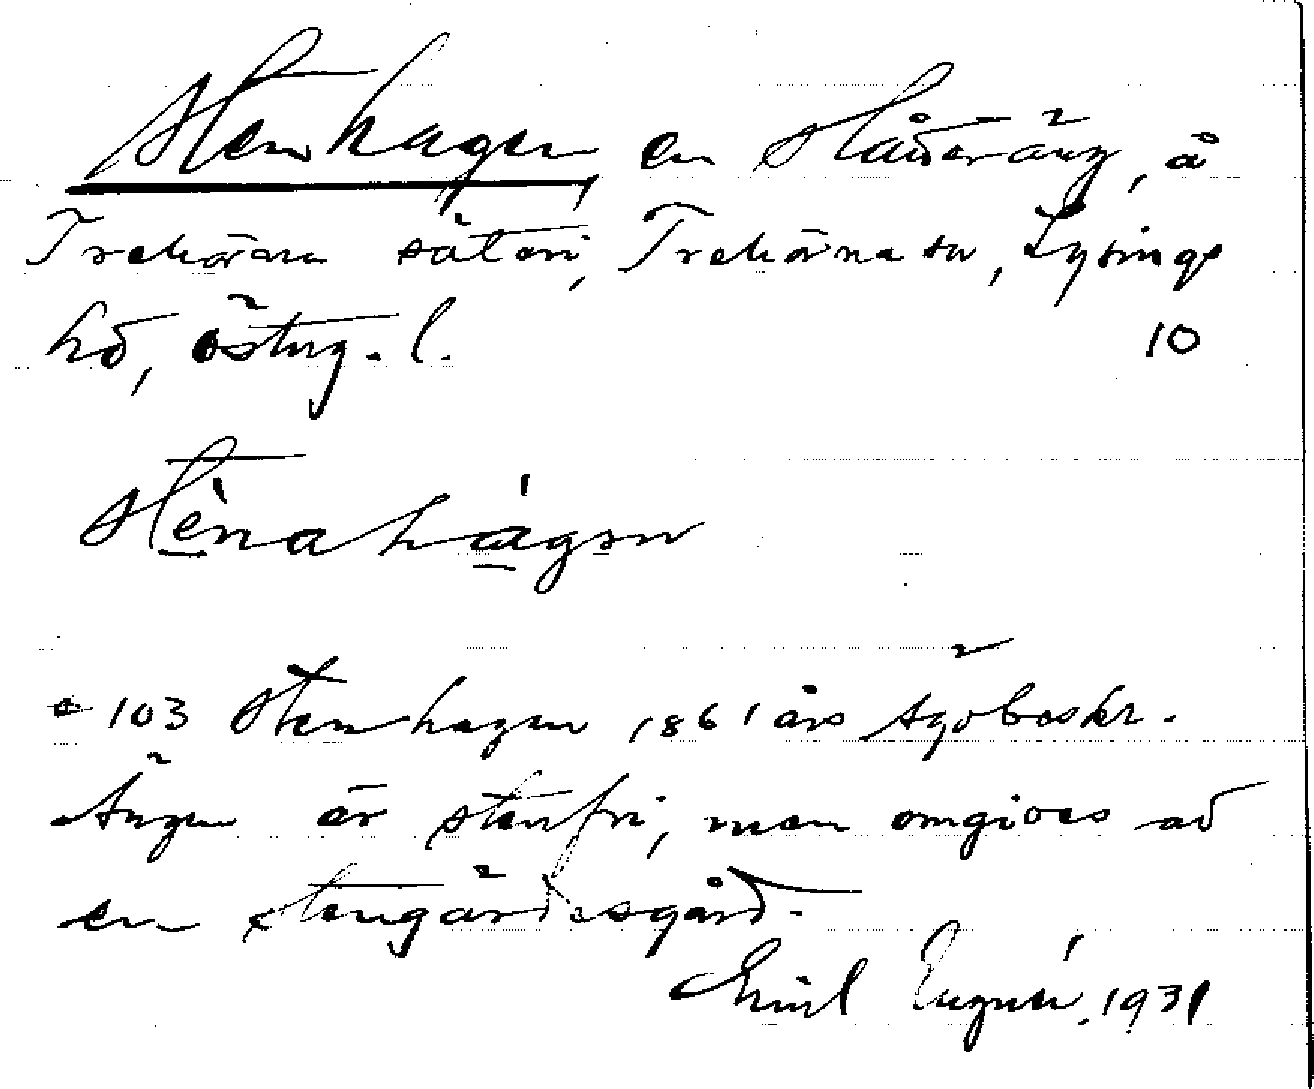 Stenhagen, en slåtteräng, å
Trehörna säteri, Trehörna sn, Lysings
hd, Österg. l. 10
stènahágən
103 Stenhagen 1861 års ägobeskr.
Ängen är stenfri, men omgives av
en stengärdesgård.
Emil 1931